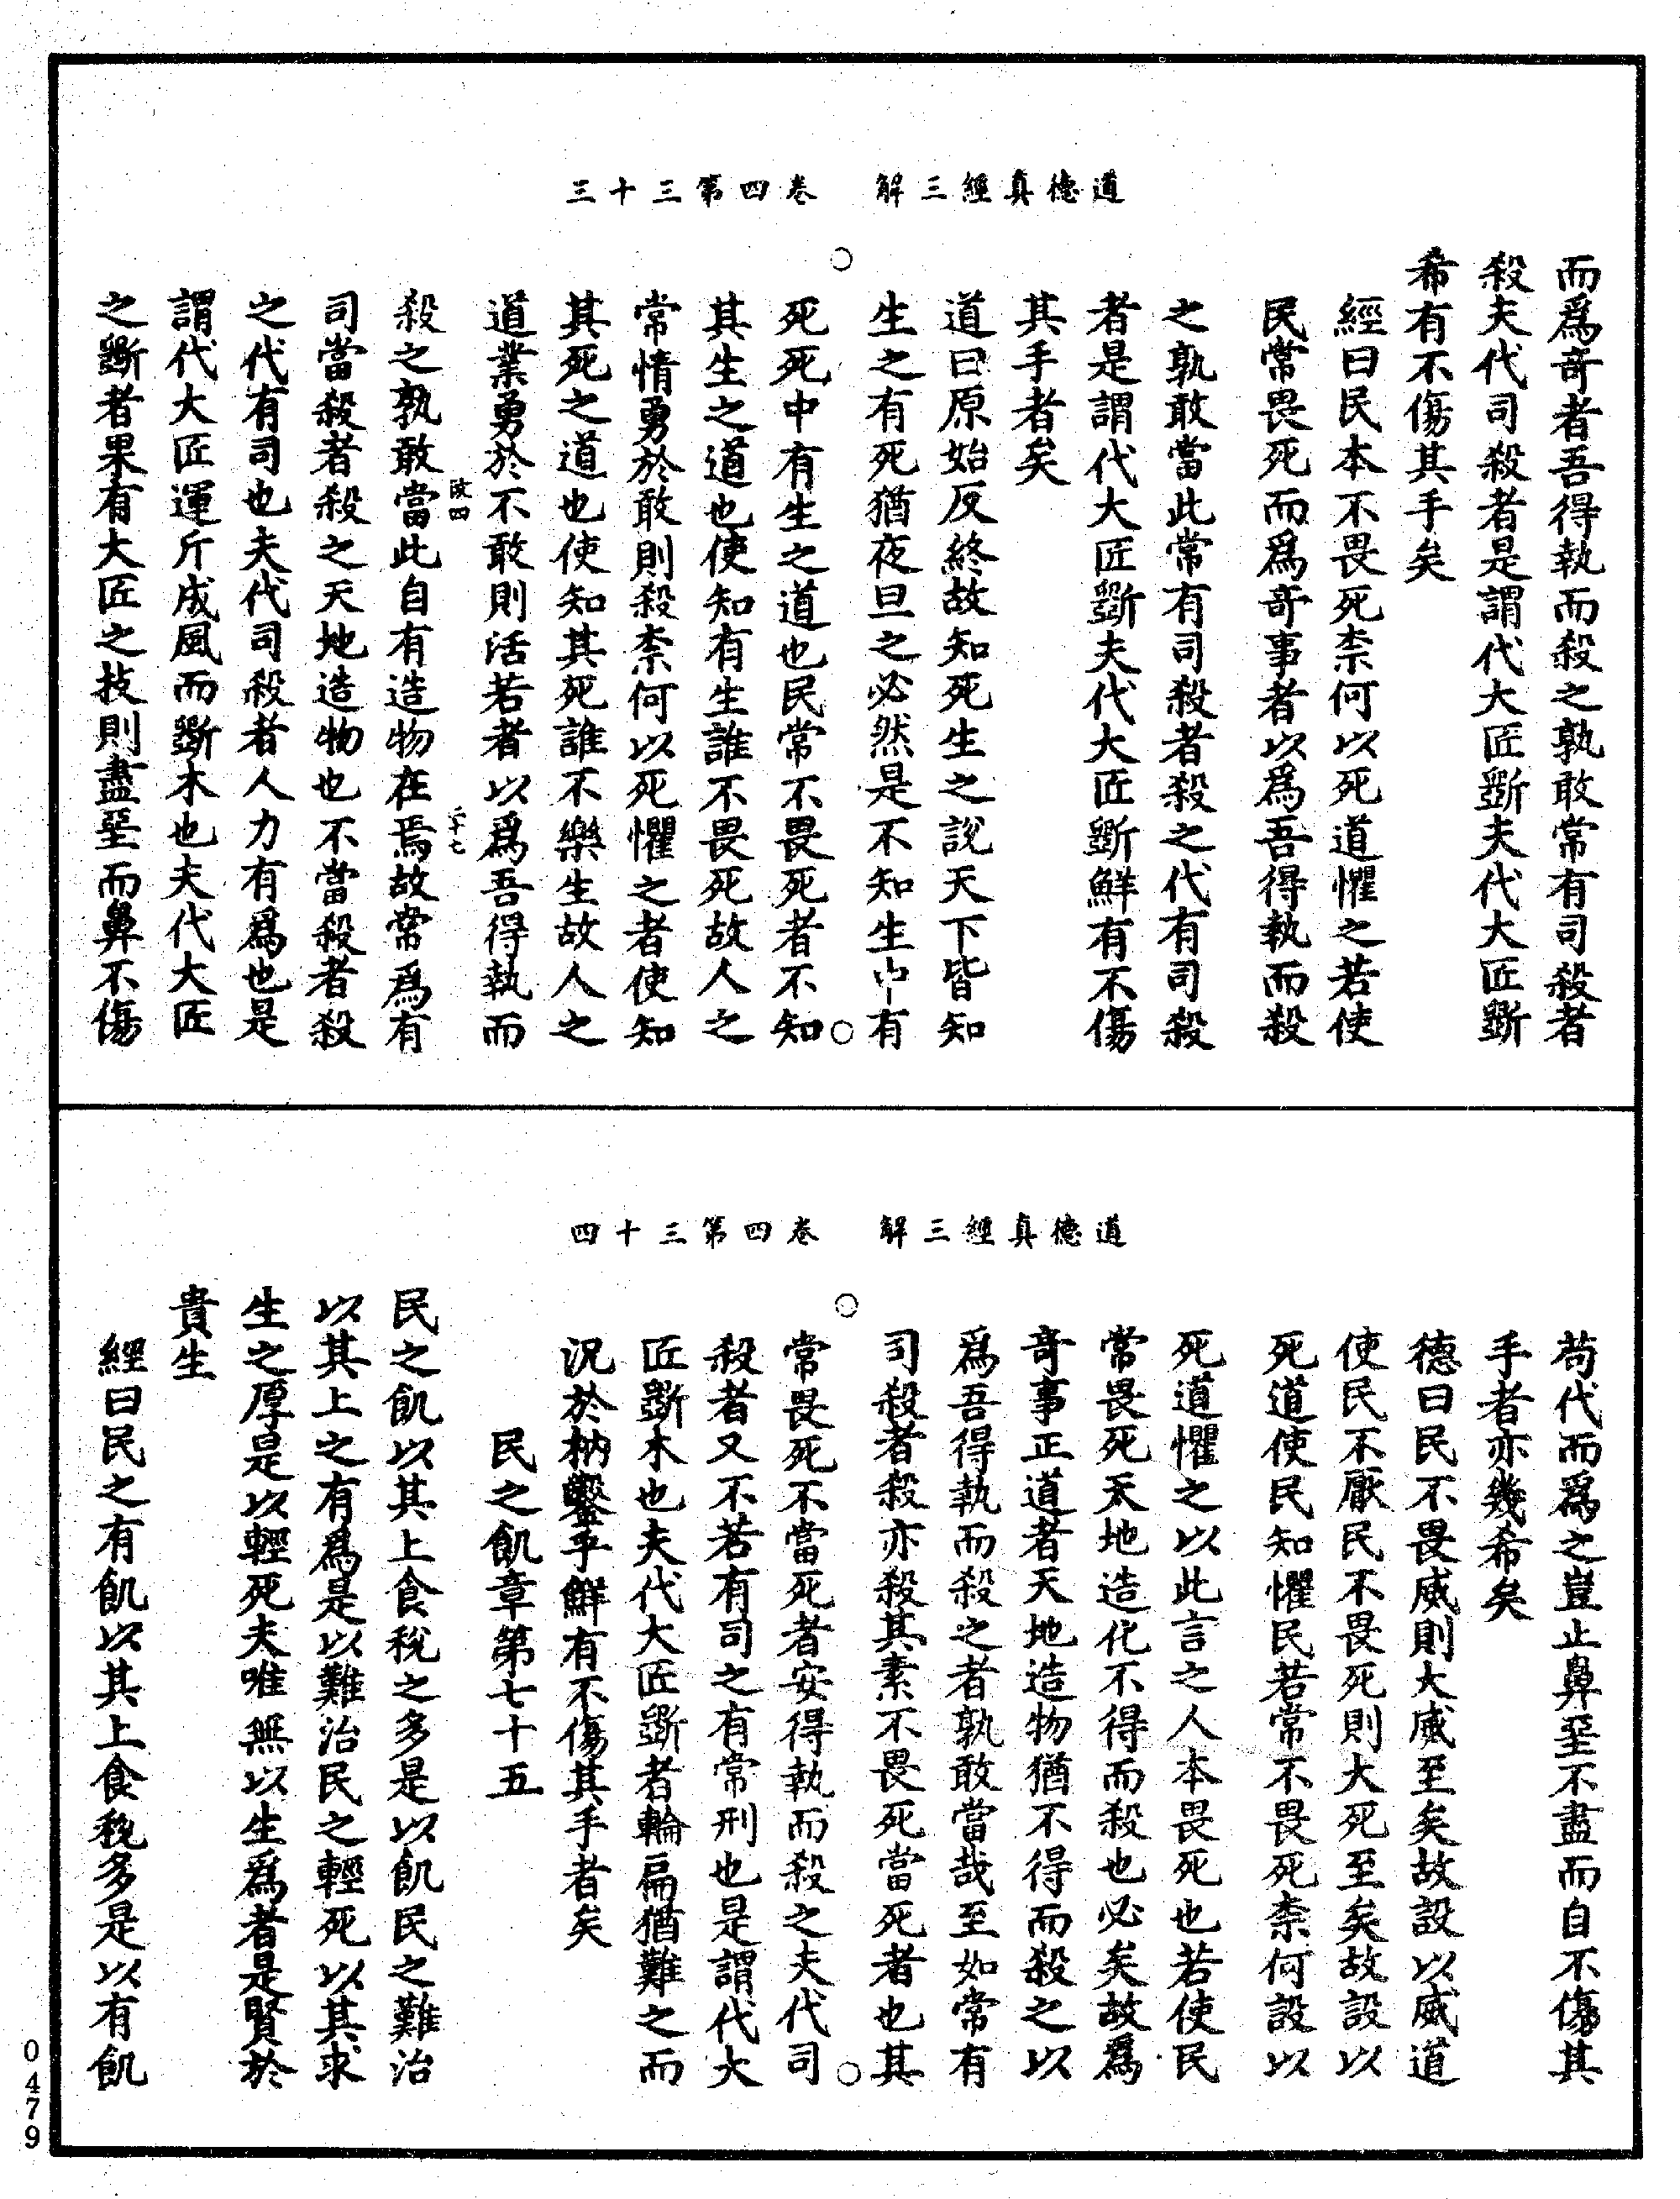 道德真經三解　卷四第三十三
而爲竒者吾得執而殺之孰敢常有司殺者
殺夫代司殺者是謂代大匠斲夫代大匠斲
希有不傷其手矣
經曰民本不畏死柰何以死道懼之若使
民常畏死而爲竒事者以爲吾得執而殺
之孰敢當此常有司殺者殺之代有司殺
者是謂代大匠斲夫代大匠斲鮮有不傷
其手者矣
道曰原始反終故知死生之說天下皆知
生之有死猶夜旦之必然是不知生中有
死死中有生之道也民常不畏死者不知
其生之道也使知有生誰不畏死故人之
常情勇於敢則殺柰何以死懼之者使知
其死之道也使知其死誰不樂生故人之
道業勇於不敢則活若者以爲吾得執而
欲四　三十七
殺之孰敢當此自有造物在焉故常爲有
司當殺者殺之天地造物也不當殺者殺
之代有司也夫代司殺者人力有爲也是
謂代大匠運斤成風而斲木也夫代大匠
之斲者果有大匠之技則盡堊而鼻不傷
道德真經三解　卷四第三十四
苟代而爲之豈止鼻堊不盡而自不傷其
手者亦幾希矣
德曰民不畏威則大威至矣故設以威道
使民不厭民不畏死則大死至矣故設以
死道使民知懼民若常不畏死柰何設以
死道懼之以此言之人本畏死也若使民
常畏死天地造化不得而殺也必矣故爲
竒事正道者天地造物猶不得而殺之以
爲吾得執而殺之者孰敢當哉至如常有
司殺者殺亦殺其素不畏死當死者也其
常畏死不當死者安得執而殺之夫代司
殺者又不若有司之有常刑也是謂代大
匠斲木也夫代大匠斲者輪扁猶難之而
況於枘鑿乎鮮有不傷其手者矣
民之飢章第七十五
民之飢以其上食稅之多是以飢民之難治
以其上之有爲是以難治民之輕死以其求
生之厚是以輕死夫唯無以生爲者是賢於
貴生
經曰民之有飢以其上食稅多是以有飢
0479